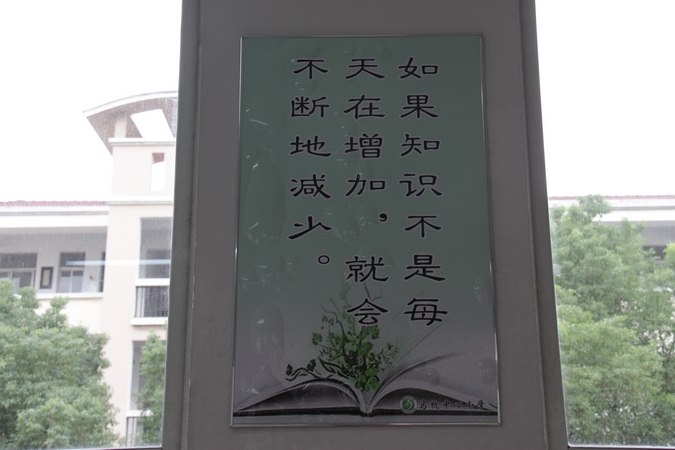 如果知识不是每
天在增加，就会
不断地减少。
中心小学